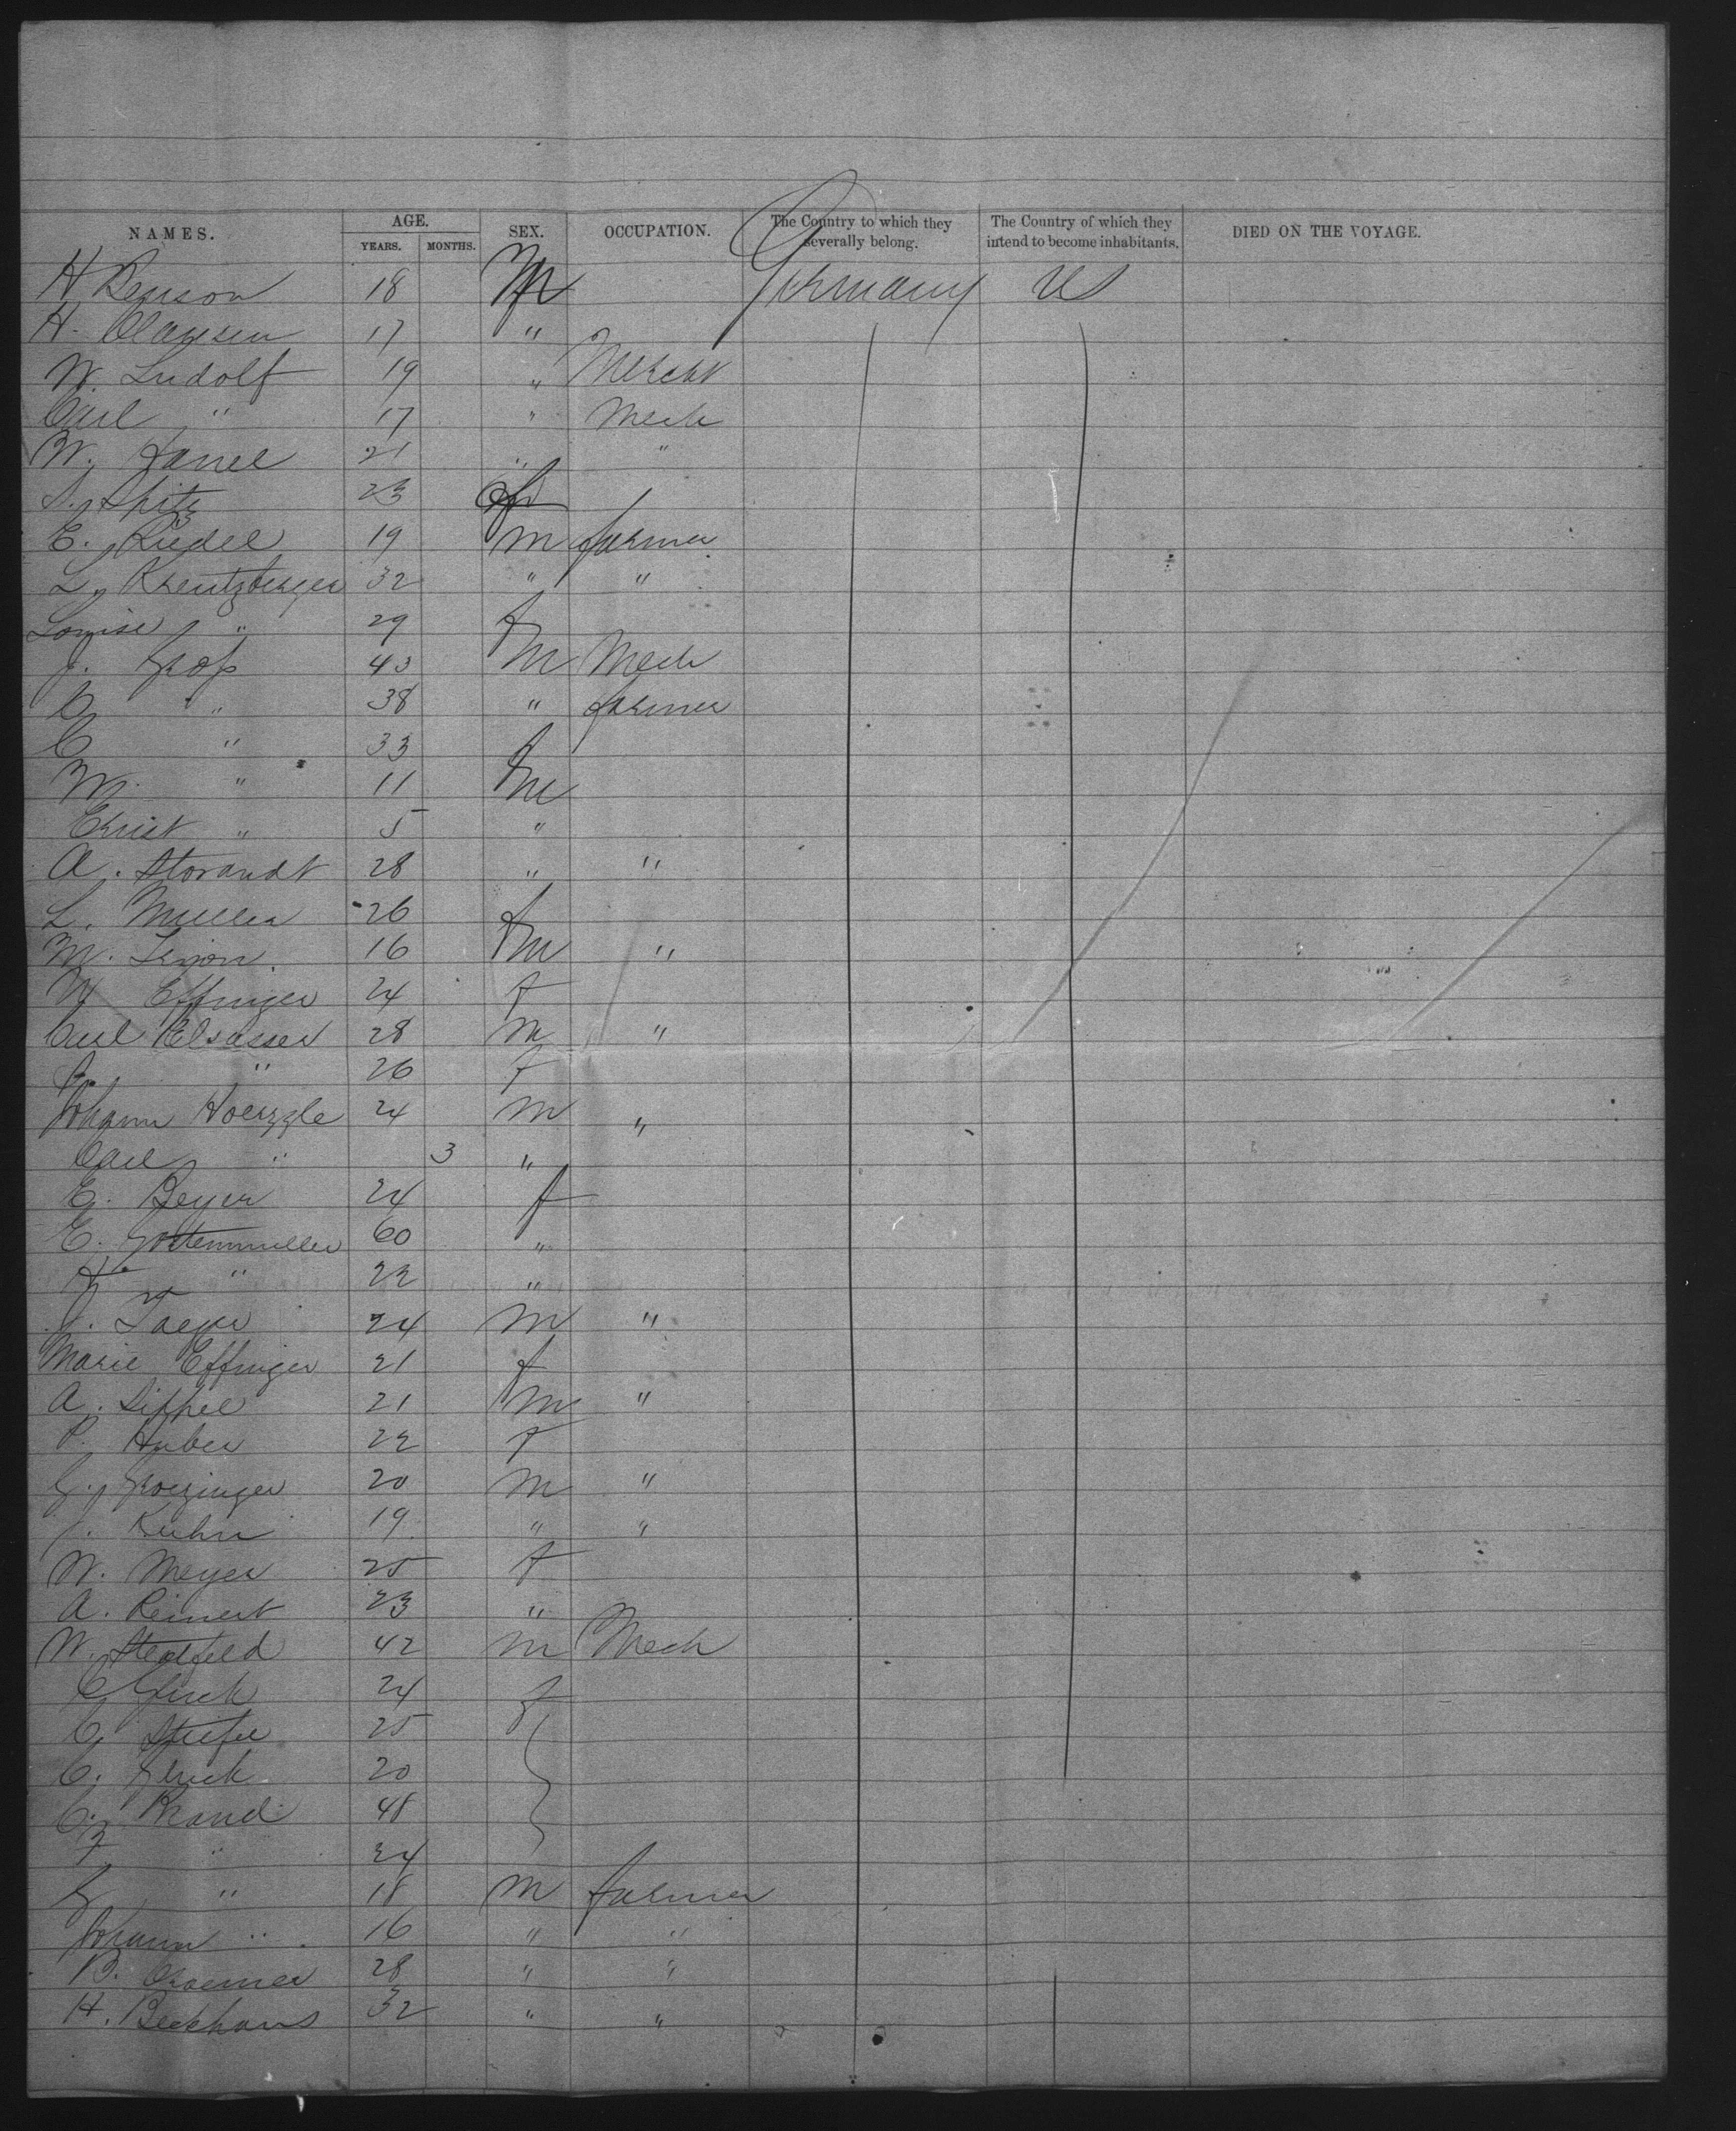 NAMES. AGE. YEARS. MONTHS. SEX. OCCUPATION. The Country to which they severally belong. The Country of which they intend to become inhabitants. DIED ON THE VOYAGE.
H Benson 18 M Germany US
H. Clausen 17 "
W. Ludolf 19 " Mercht
Carl " 17 " Mech
W. 21 " "
S. Spitz 23 f
E. Riedel 19 M farmer
L. Kreutzberger 32 " "
Louise " 29 f
J. Groß 43 M Mech
" 38 " farmer
C " 33 f
W. " 11 M
Christ " 5 "
A. Storandt 28 " "
L. Muller 26 f
M. Simon 16 M "
M Effinger 24 f
Carl Elsasser 28 M "
" 26 f
Johann Hoerzgle 24 M "
Carl " 3 "
E. Beyer 24 f
E. Gostenmuller 60 "
" 22 "
J. Taege 24 M "
Marie Effinger 21 f
A. Sippel 21 M "
P. Huber 22 f
G. Groezinger 20 M "
J. Kuhn 19 " "
W. Meyer 25 f
A. Reinert 23 "
W. 42 M Mech
C Gluck 24 f
C. Stiefel 25
C. Gluck 20
C. Brand 48
F " 24
G " 18 M farmer
Johann " 16 " "
B. Kraemer 28 " "
H. Beckhaus 32 " "